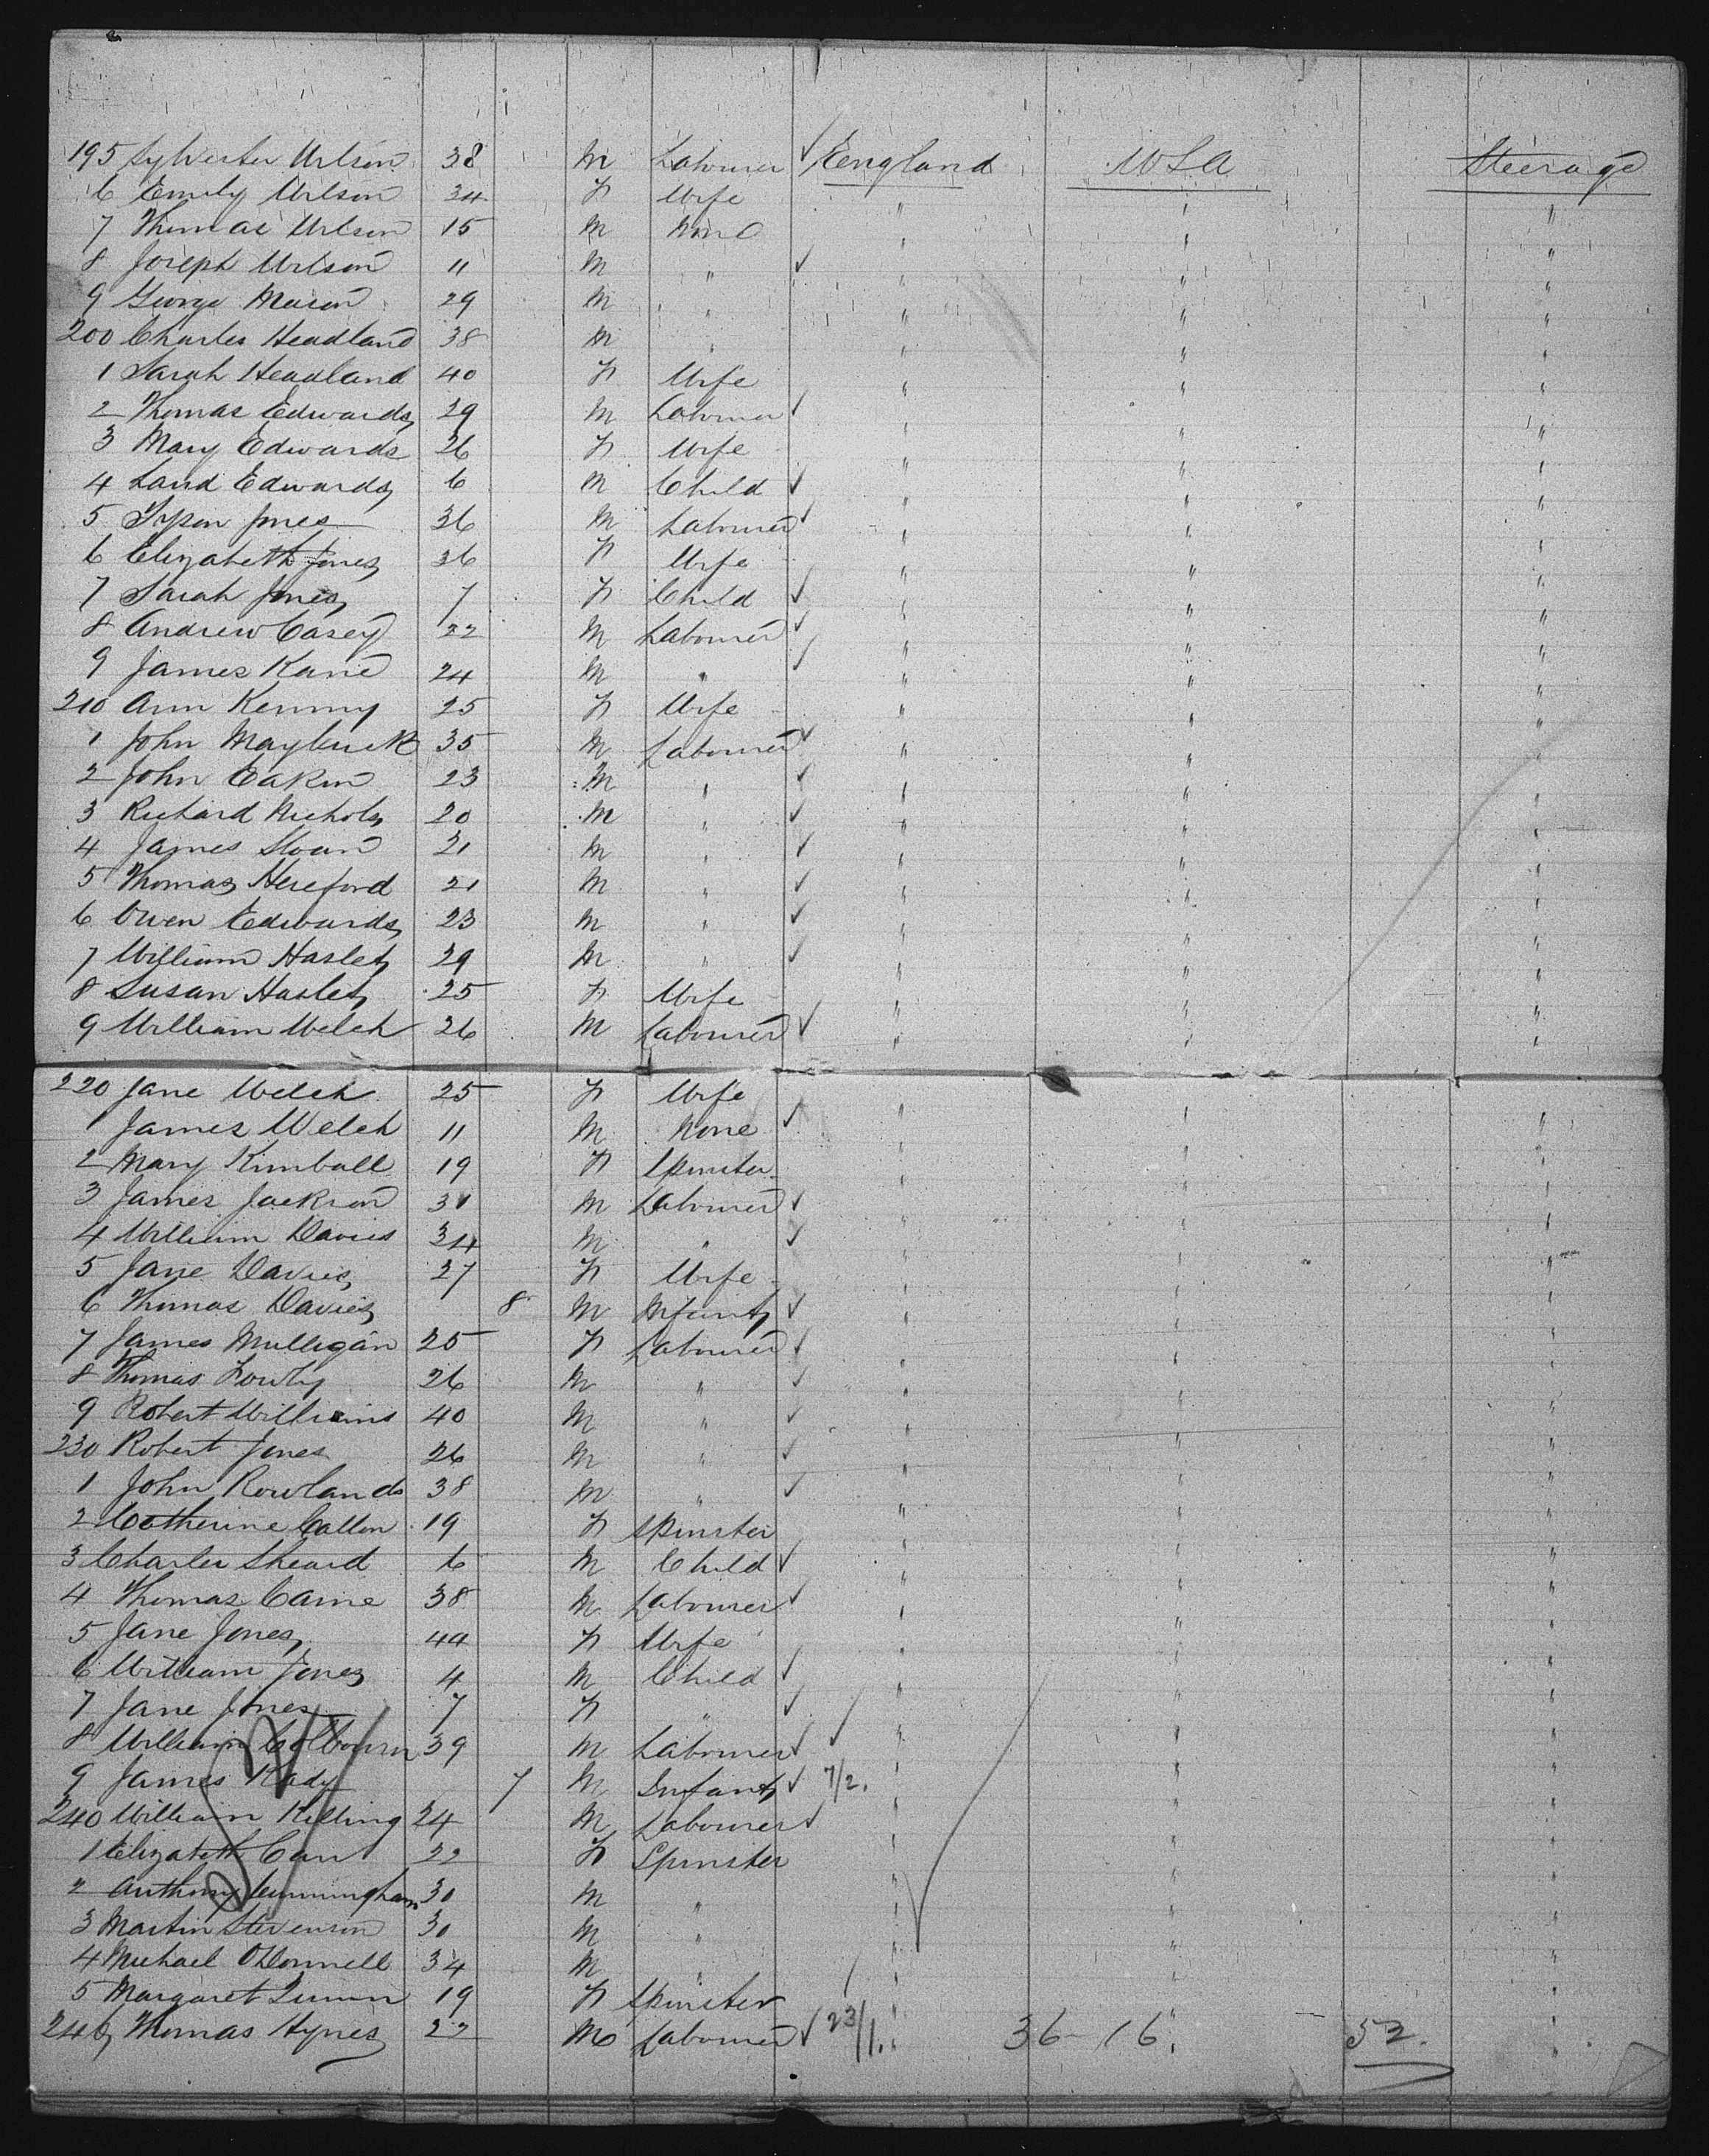 195 Sylvester Wilson 38 M Labourer ✓ England USA Steerage
6 Emily Wilson 24 F Wife " " "
7 Thomas Wilson 15 M None " " "
8 Joseph Wilson 11 M " ✓ " " "
9 George Mason 29 M " " " "
200 Charles Headland 38 M " " " "
1 Sarah Headland 40 F Wife " " "
2 Thomas Edwards 29 M Labourer ✓ " " "
3 Mary Edwards 26 F Wife " " "
4 Edwards 6 M Child ✓ " " "
5 Jones 36 M Labourer ✓ " " "
6 Elizabeth Jones 36 F Wife " " "
7 Sarah Jones 7 F Child ✓ " " "
8 Andrew Casey 22 M Labourer ✓ " " "
9 James Kane 24 M " ✓ " " "
210 Ann Kenny 25 F Wife " " "
1 John 35 M Labourer ✓ " " "
2 John Eakin 23 M " ✓ " " "
3 Richard Nichols 20 M " ✓ " " "
4 James Sloan 21 M " ✓ " " "
5 Thomas Hereford 21 M " ✓ " " "
6 Owen Edwards 23 M " ✓ " " "
7 William Haslet 29 M " ✓ " " "
8 Susan Haslet 25 F Wife " " "
9 William Welch 26 M Labourer ✓ " " "
220 Jane Welch 25 F Wife " " "
1 James Welch 11 M None ✓ " " "
2 Mary Kimball 19 F Spinster " " "
3 James Jackson 30 M Labourer ✓ " " "
4 William Davies 34 M " ✓ " " "
5 Jane Davies 27 F Wife " " "
6 Thomas Davies 8 M Infant ✓ " " "
7 James Mulligan 25 F Labourer ✓ " " "
8 Thomas 26 M " ✓ " " "
9 Robert Williams 40 M " ✓ " " "
230 Robert Jones 26 M " ✓ " " "
1 John Rowlands 38 M " ✓ " " "
2 Catherine Callon 19 F Spinster " " "
3 Charles Sheard 6 M Child ✓ " " "
4 Thomas Caine 38 M Labourer ✓ " " "
5 Jane Jones 44 F Wife " " "
6 William Jones 4 M Child ✓ " " "
7 Jane Jones 7 F " ✓ " " "
8 William Colbourn 39 M Labourer ✓ ✓ " " "
9 James Kady 7 M Infant ✓ 7/2. " " "
240 William Killing 24 M Labourer ✓ " " "
1 Elizabeth 22 F Spinster " " "
2 Anthony Cunningham 30 M " " " "
3 Martin Stevenson 30 M " " " "
4 Michael ODonnell 34 M " " " "
5 Margaret Quinn 19 F Spinster " " "
246 Thomas Hynes 22 M Labourer ✓ 23/1. " 36 - 16 " 52. "